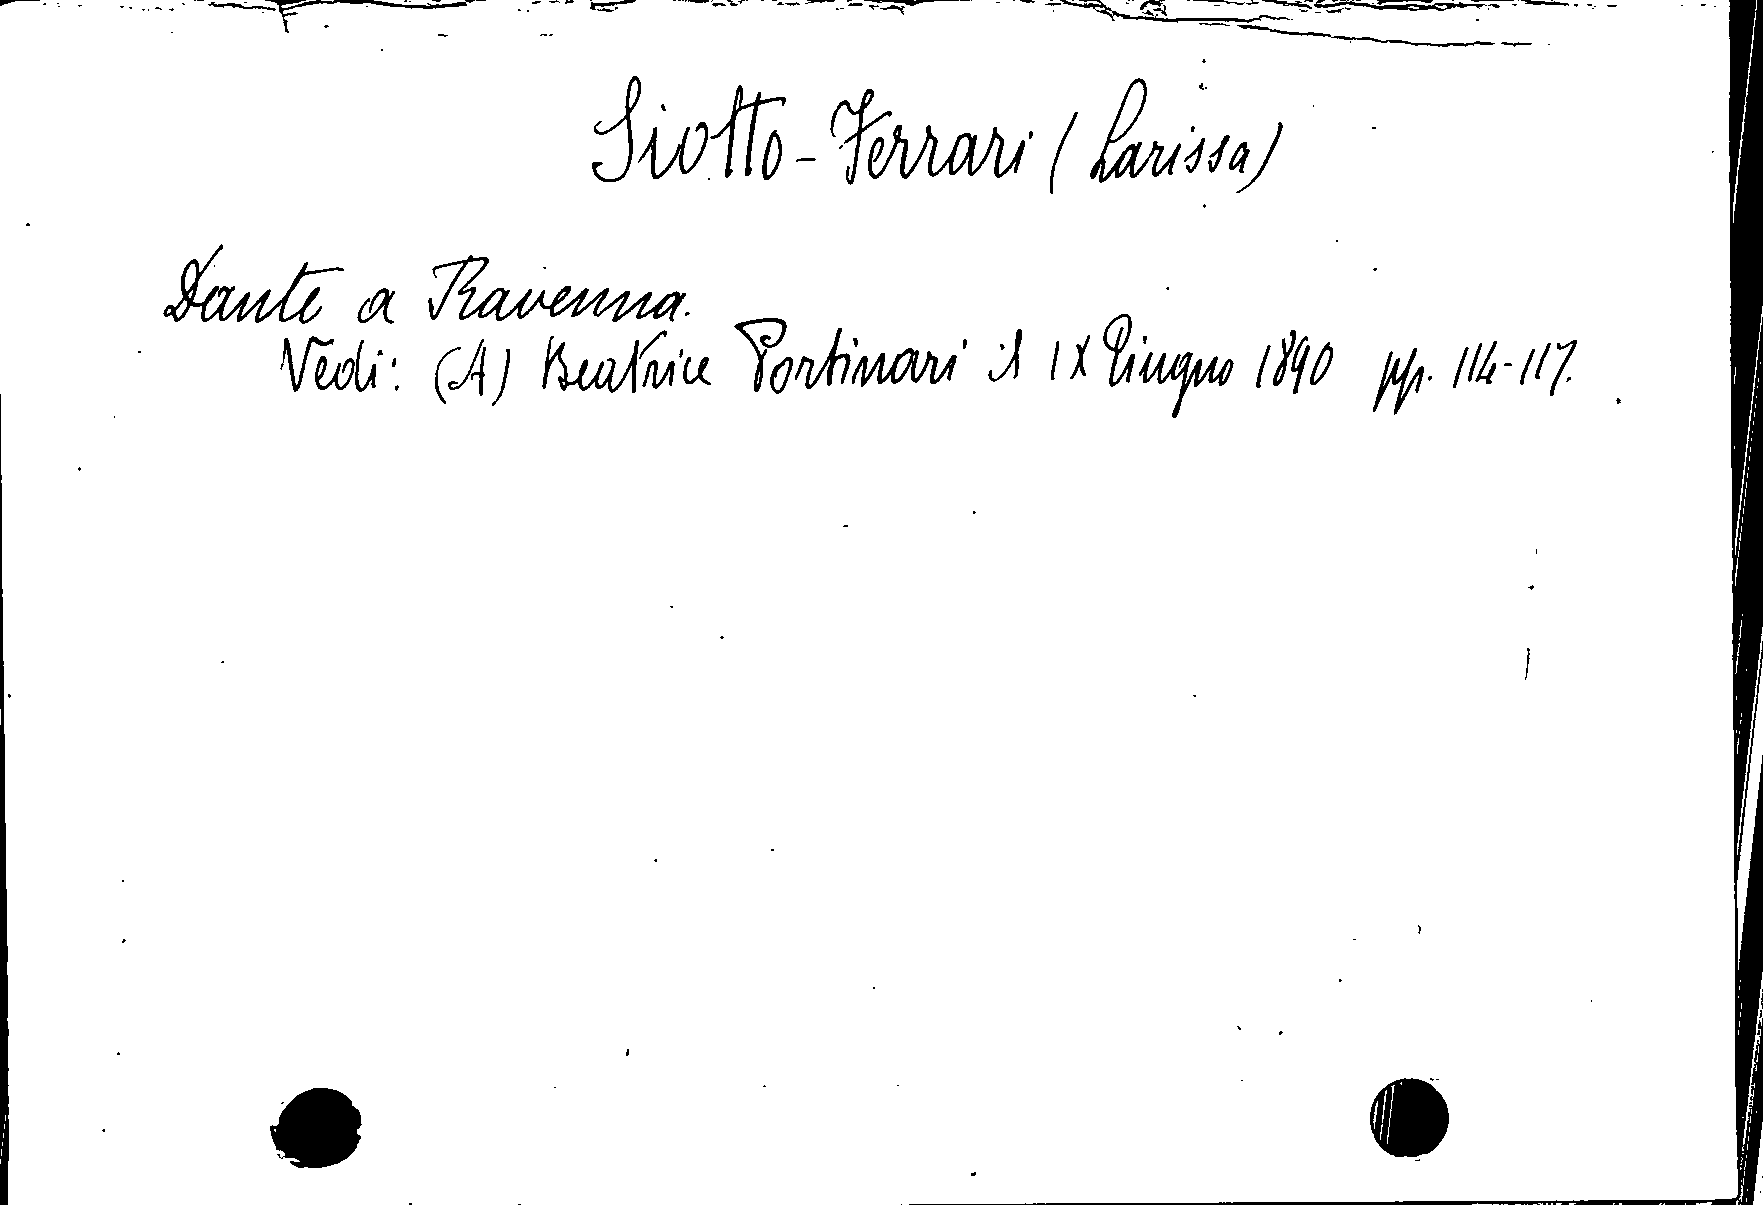 Siotto-Ferrari (Larissa)
Dante a Ravenna.
Vedi: (A) Beatrice Portinari il IX Giugno 1890 pp. 114-117.